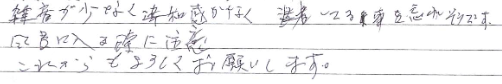 雑音が少なく違和感がなく 装着している事を忘れそうです。
に入る際に注意
これからもよろしくお願いします。